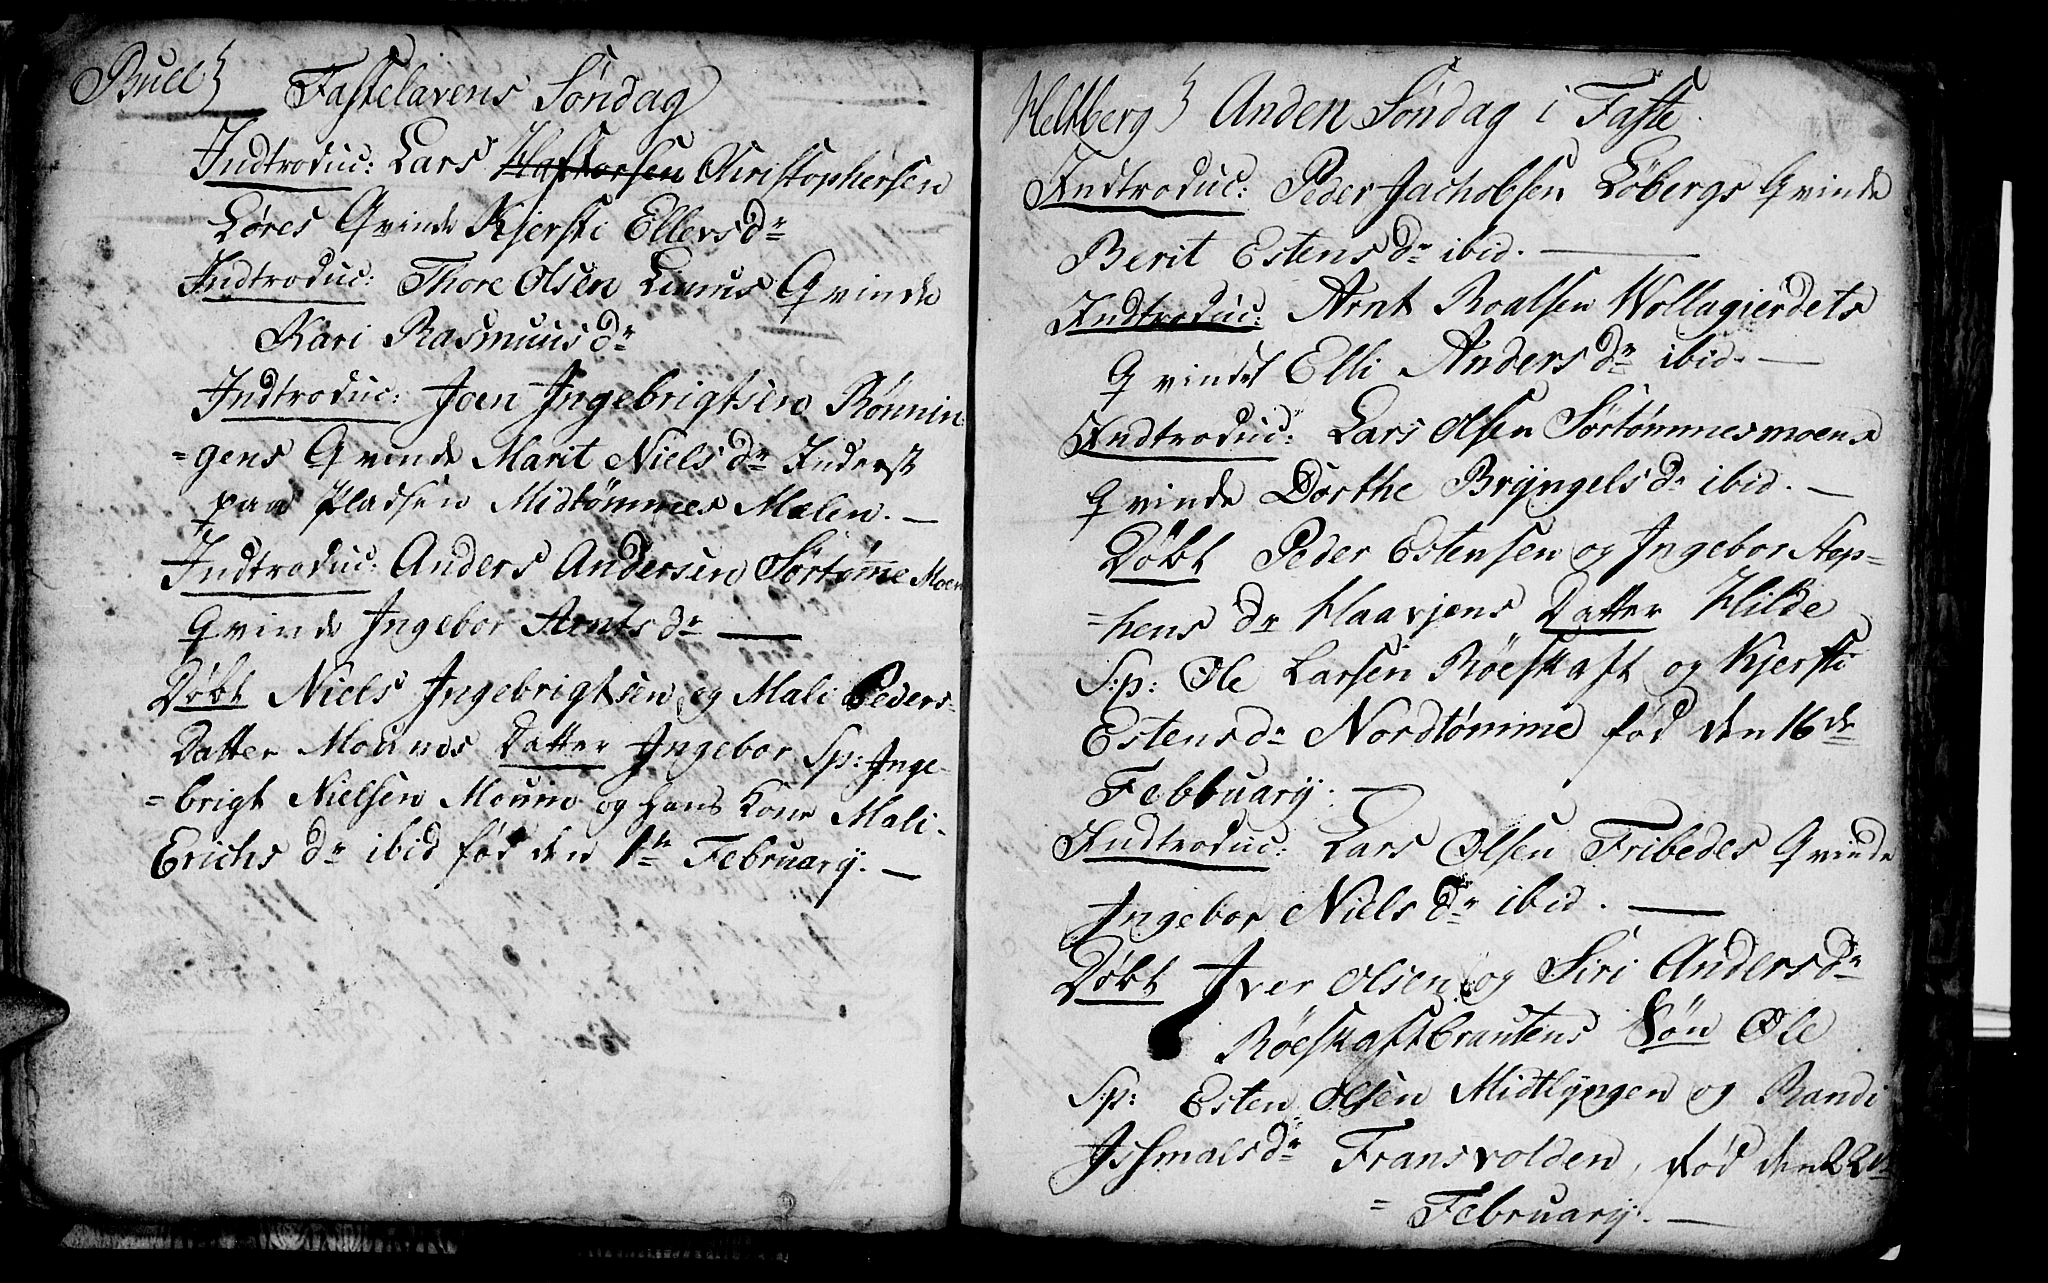 Bull} Fastelavens Søndag
Indtroduc: Lars Haftorsen Christophersen
Løres Qvinde Kjersti Ellevs dr
Indtroduc: Thore Olsen Liens Qvinde
Kari Rasmuus dr
Indtroduc: Joen Ingebrigtsen Rønnin
=gens Qvinde Marit Niels dr Inderst
paa Pladsen Midtømmes Mælen. —
Indtroduc: Anders Andersen Sørtømme Moen
Qvinde Ingebor Arnts dr —
Døbt Niels Ingebrigtsen og Mali Peders-
Datter Mounes Datter Ingebor Sp: Inge-
=brigt Nielsen Moune og hans Kone Mali
Erichs dr ibid fød den 1te February. —
Heltberg} Anden Søndag i Faste.
Indtroduc: Peder Jachobsen Løbergs Qvinde
Berit Estens dr ibid. —
Indtroduc: Arnt Roalsen Wollagierdets
Qvindes Elli Anders dr ibid. —
Indtroduc: Lars Olsen Sørtømmesmoens
Qvinde Dorthe Bryngels dr ibid. —
Døbt Peder Estensen og Ingebor Step-
=hens dr Haavjens Datter Hilde
S:p: Ole Larsen Røeskaft og Kjersti
Estens dr Nordtømme fød den 16de
February. —
Indtroduc: Lars Olsen Fribedes Qvinde
Ingebor Niels dr ibid. —
Døbt Iver Olsen og Siri Anders dr
Røeskaftbrautens Søn Ole
S:p: Esten Olsen Midtlyngen og Randi
Issmals dr Fransvolden, fød den 22de
= February. —